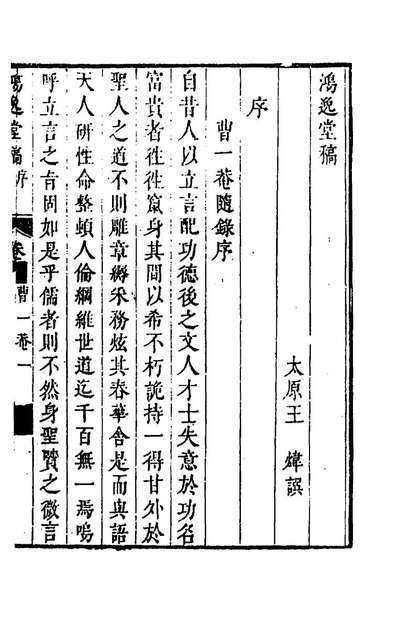 鴻逸堂稿
太原王　煒譔
序
曹一菴隨錄序
自昔人以立言配功德後之文人才士失意於功名
富貴者徃徃竄身其間以希不朽詭持一得甘外於
聖人之道不則雕章縟采務炫其春華舍是而與語
天人研性命整頓人倫綱維世道迄千百無一焉嗚
呼立言之旨固如是乎儒者則不然身聖賢之微言
鴻逸堂稿 序 卷 曹一菴 一